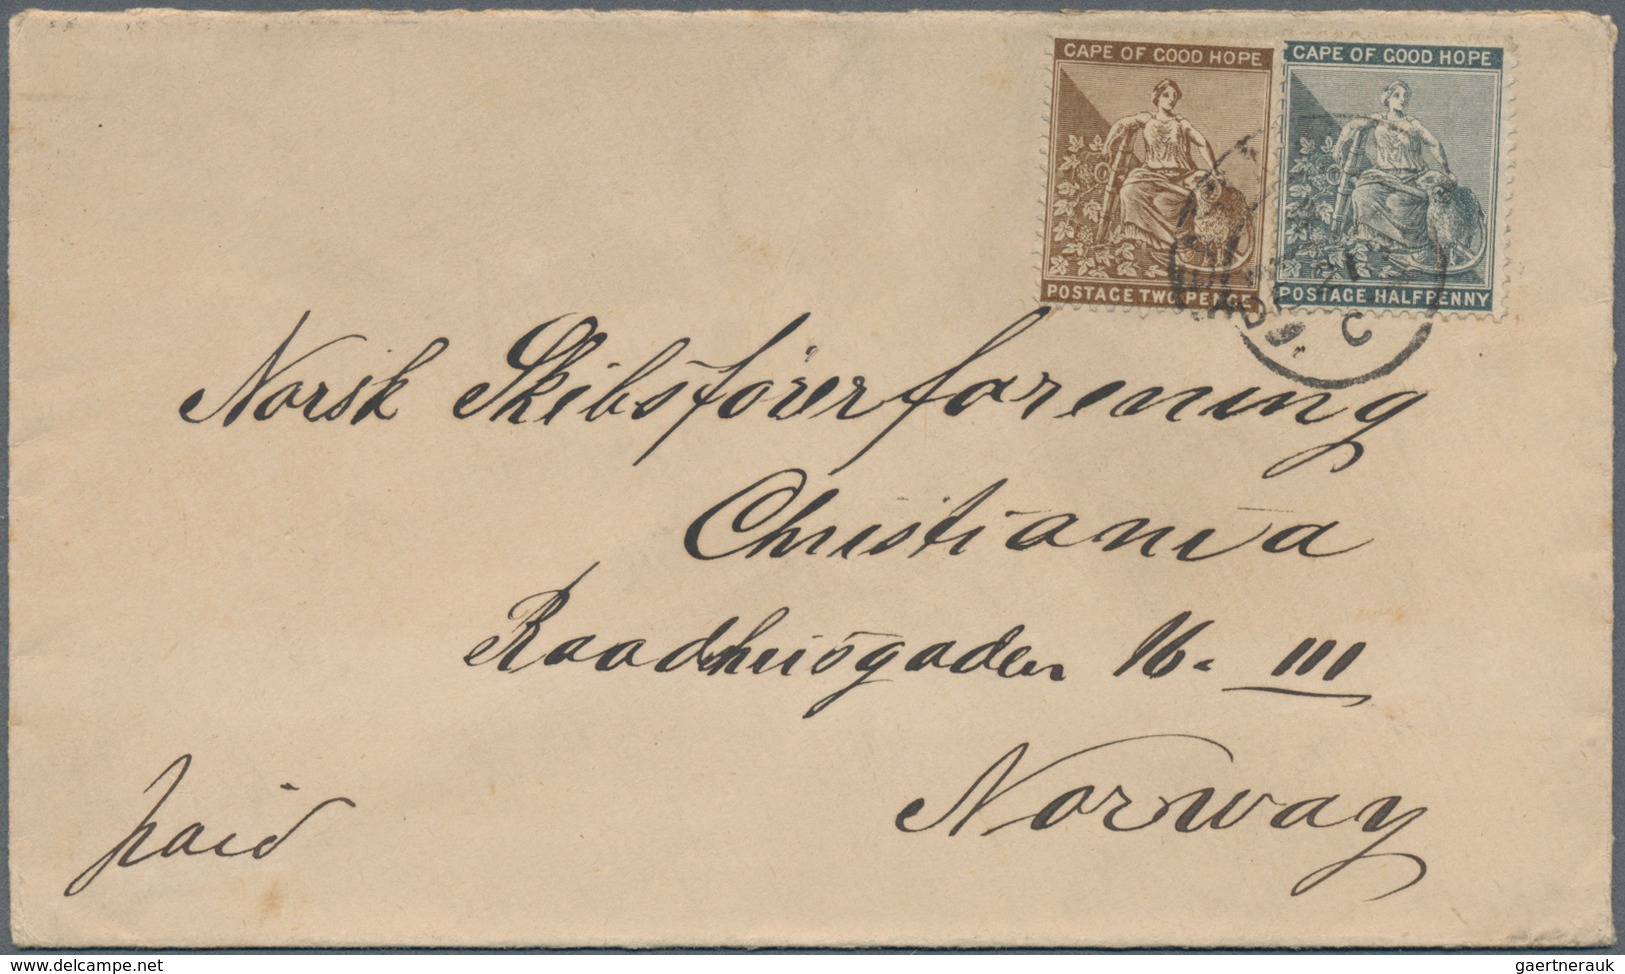 CAPE OF GOOD HOPE
POSTAGE TWO PENCE
CAPE OF GOOD HOPE
POSTAGE HALFPENNY
Norsk Skibsförerforening
Christiania
Raadhusgaden 16. III
Norway
paid
www.delcampe.net
gaertnerauk